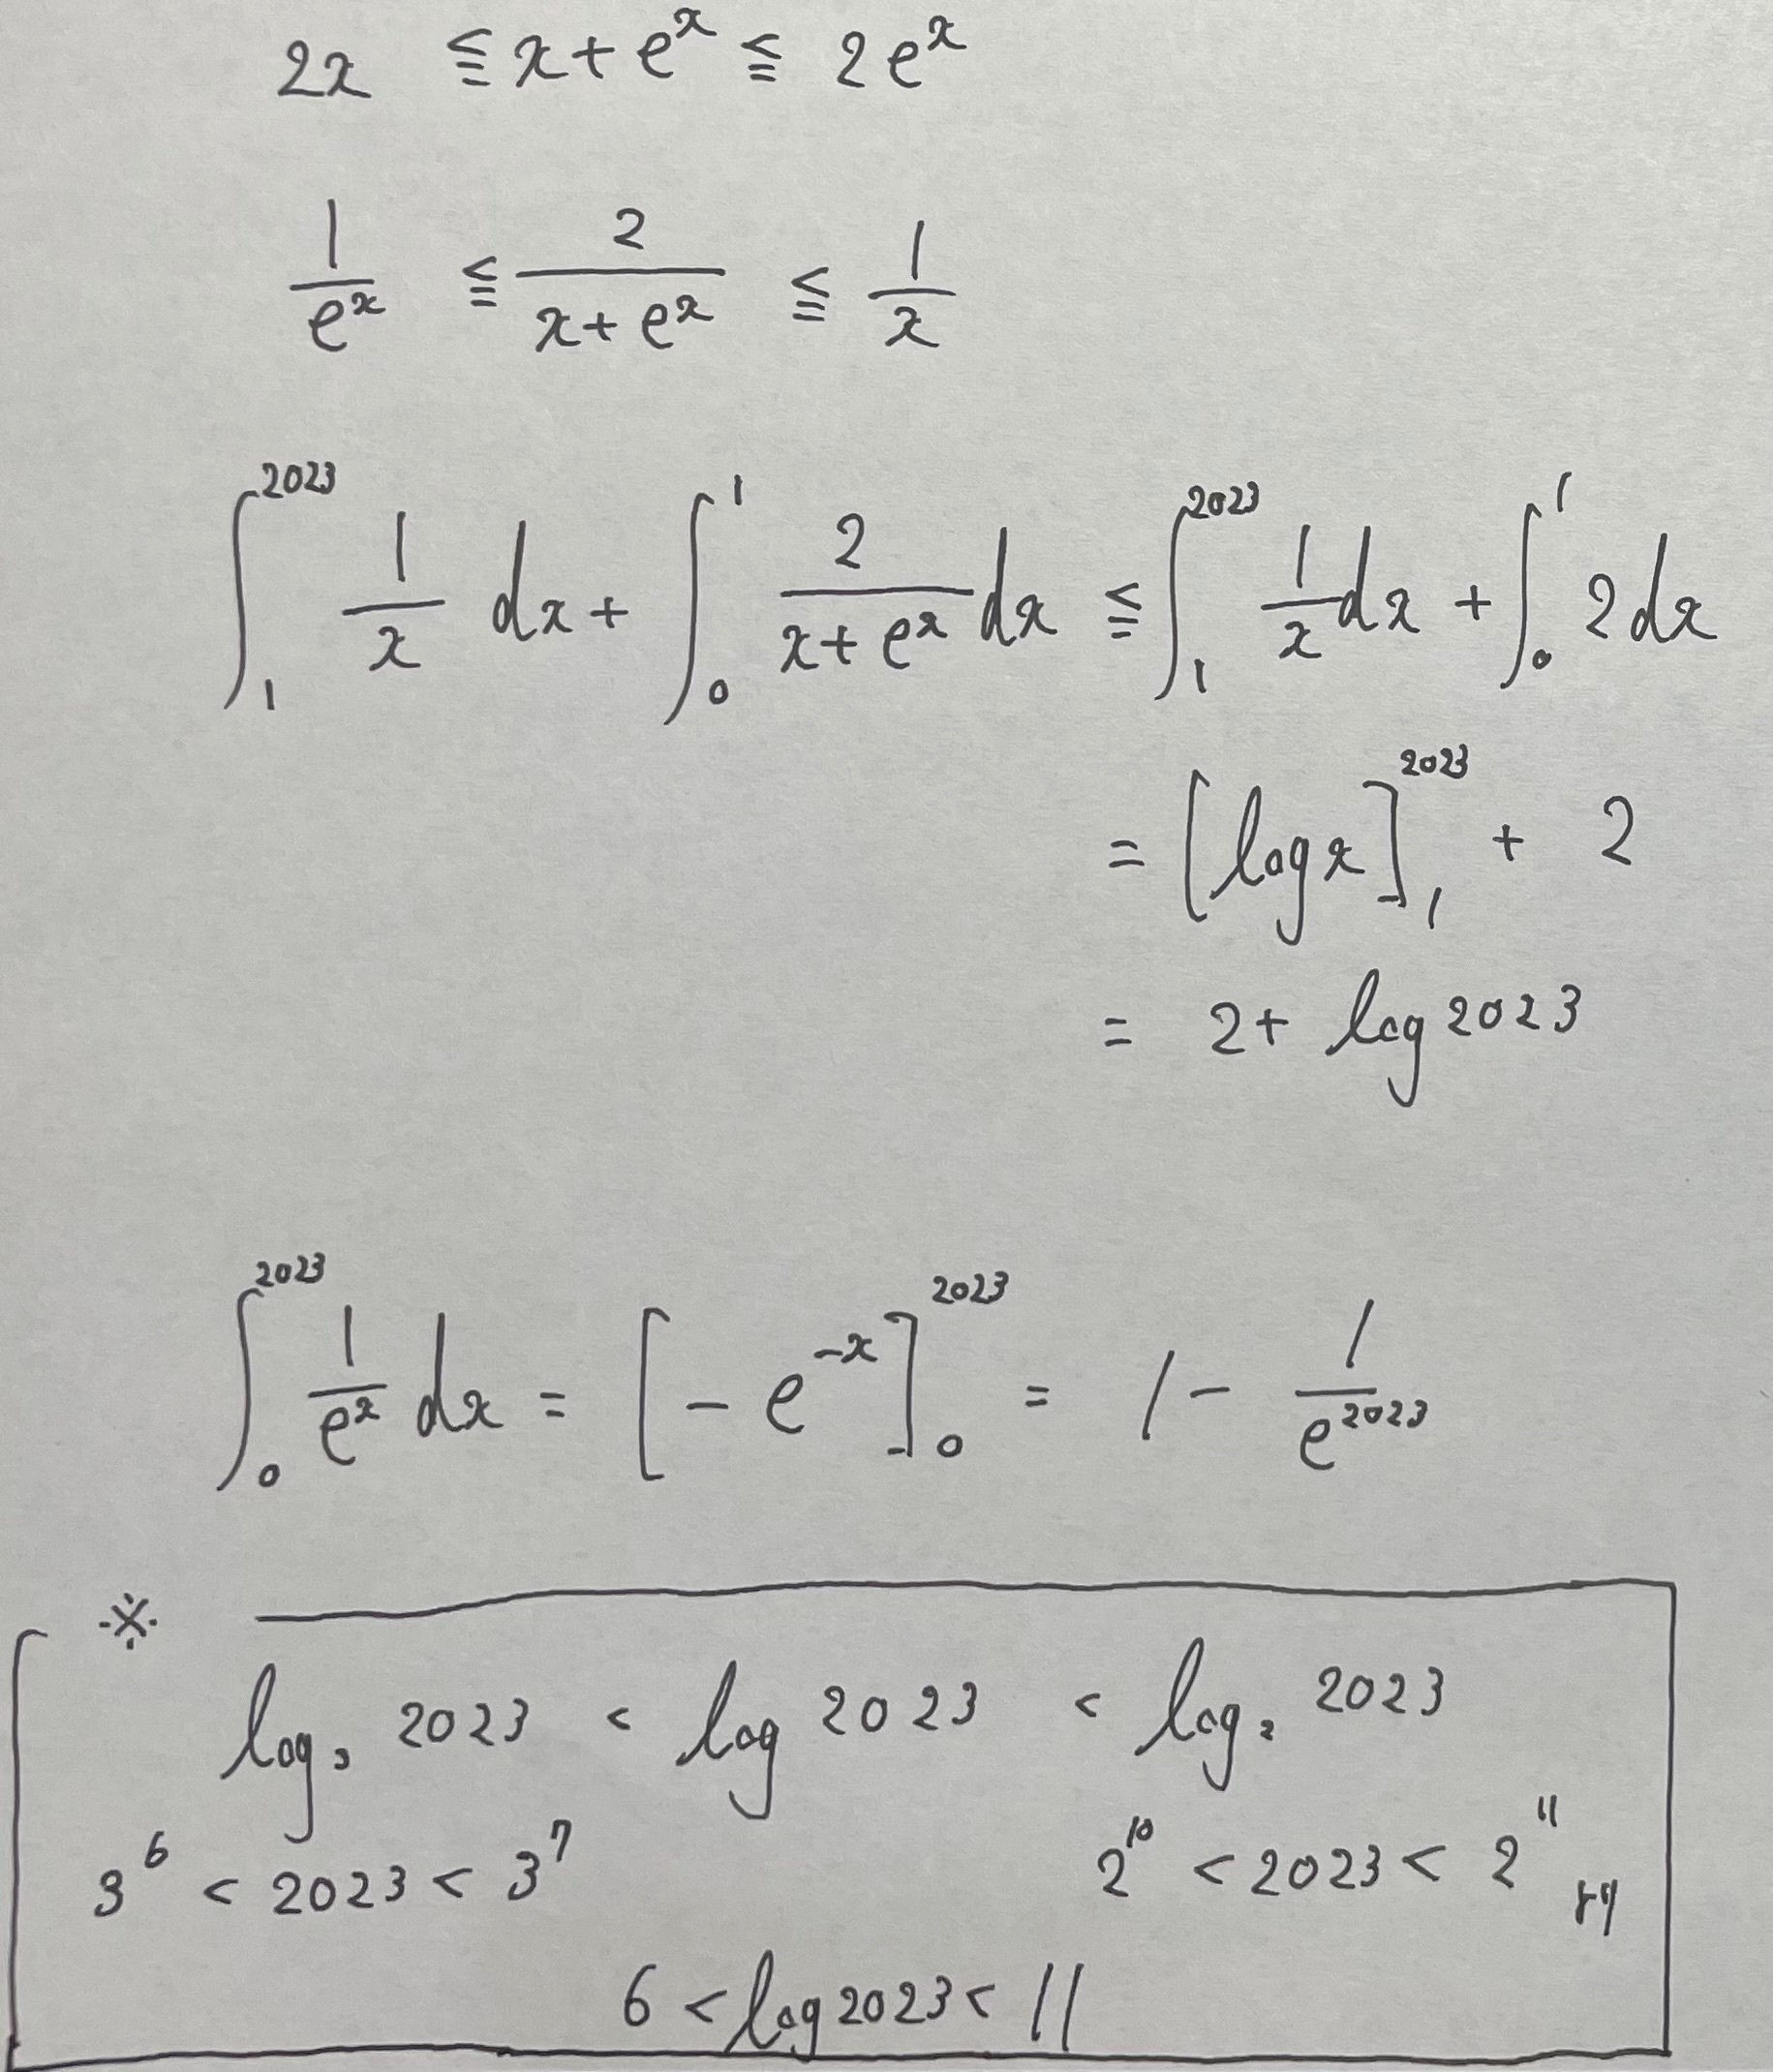 2x ≦ x + e^x ≦ 2e^x
1/e^x ≦ 2/(x + e^x) ≦ 1/x
∫_1^2023 1/x dx + ∫_0^1 2/(x + e^x) dx ≦ ∫_1^2023 1/x dx + ∫_0^1 2dx
= [log x]_1^2023 + 2
= 2 + log 2023
∫_0^2023 1/e^x dx = [-e^-x]_0^2023 = 1 - 1/e^2023
※
log_3 2023 < log 2023 < log_2 2023
3^6 < 2023 < 3^7 2^10 < 2023 < 2^11 より
6 < log 2023 < 11